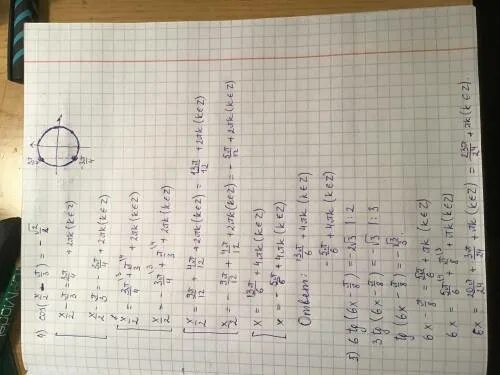 4) cos(x/2 - π/3) = -√2/2
3π/4
-3π/4
[ x/2 - π/3 = 3π/4 + 2πk (k∈Z)
x/2 - π/3 = -3π/4 + 2πk (k∈Z)
[ x/2 = 3π/4 + π/3 + 2πk (k∈Z)
x/2 = -3π/4 + π/3 + 2πk (k∈Z)
[ x/2 = 9π/12 + 4π/12 + 2πk (k∈Z) = 13π/12 + 2πk (k∈Z)
x/2 = -9π/12 + 4π/12 + 2πk (k∈Z) = -5π/12 + 2πk (k∈Z)
[ x = 13π/6 + 4πk (k∈Z)
x = -5π/6 + 4πk (k∈Z)
Ответ: 13π/6 + 4πk (k∈Z)
-5π/6 + 4πk (k∈Z)
5) 6 tg (6x - π/8) = -2√3 |:2
3 tg (6x - π/8) = -√3 |:3
tg (6x - π/8) = -√3/3
6x - π/8 = 5π/6 + πk (k∈Z)
6x = 5π/6 + π/8 + πk (k∈Z)
6x = 20π/24 + 3π/24 + πk (k∈Z) = 23π/24 + πk (k∈Z)